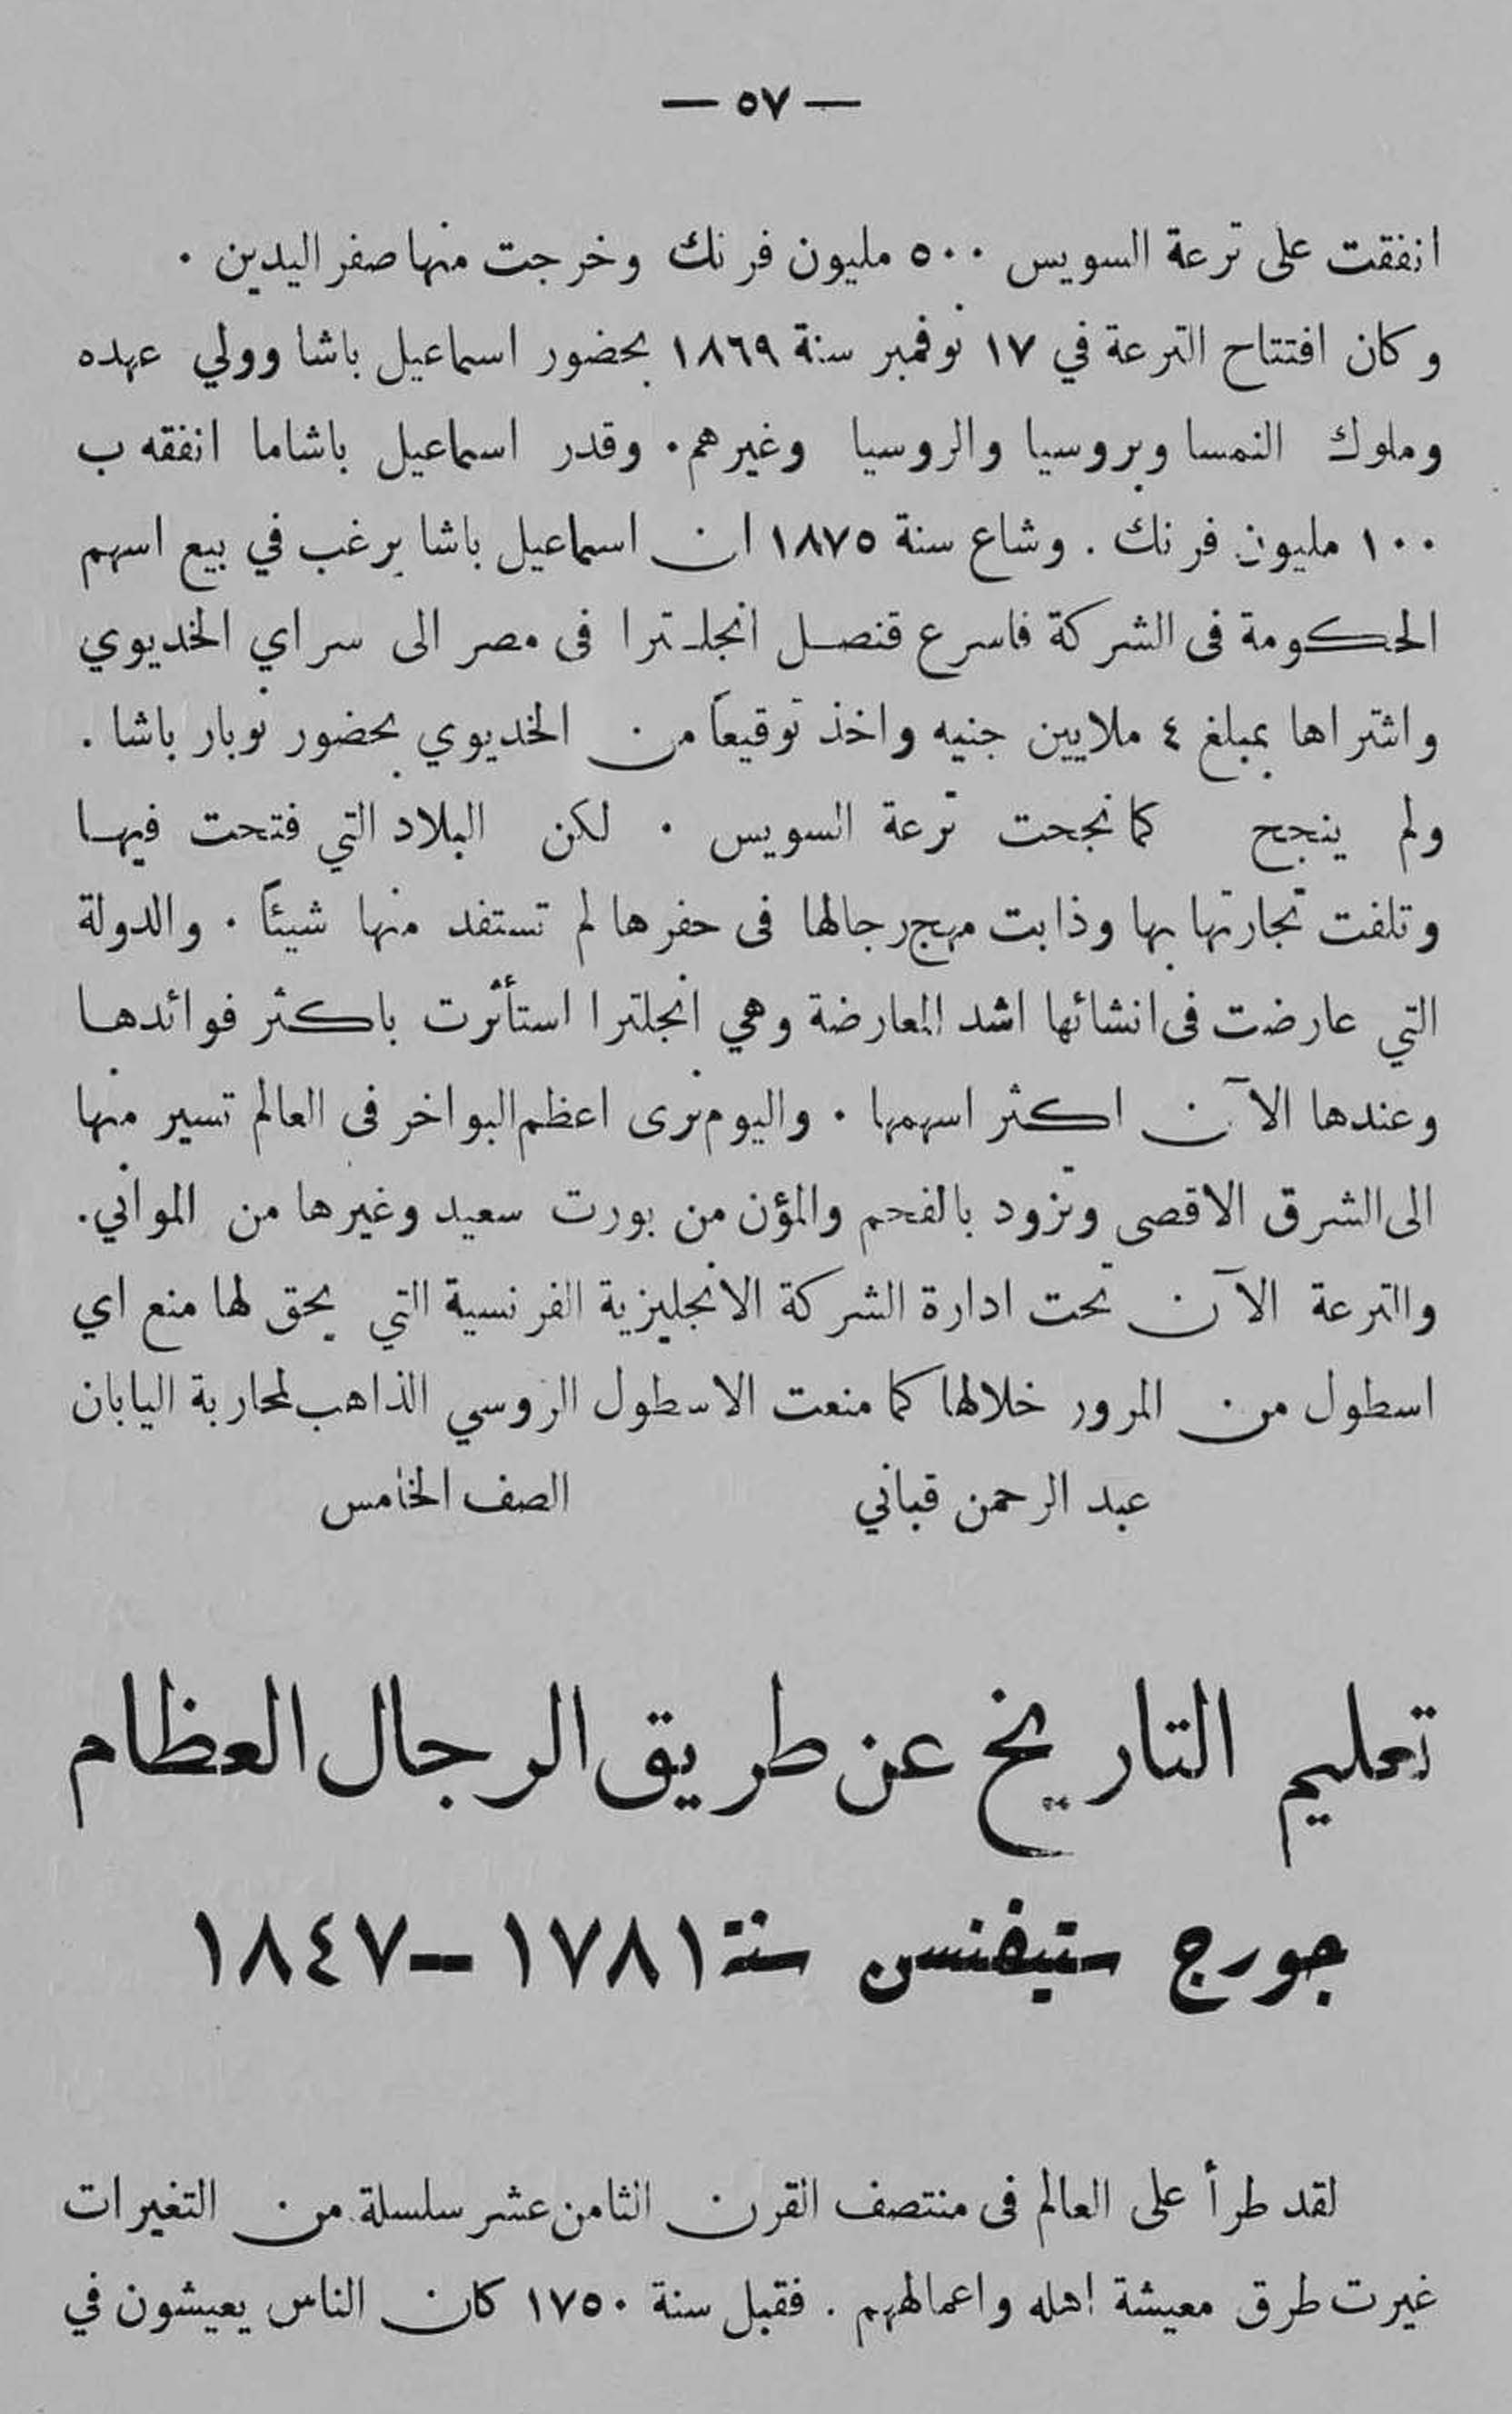 — ٥٧ —
انفقت على ترعة السويس ٥٠٠ مليون فرنك وخرجت منها صفر اليدين .
وكان افتتاح الترعة في ١٧ نوفمبر سنة ١٨٦٩ بحضور اسماعيل باشا وولي عهده
وملوك النمسا وبروسيا والروسيا وغيرهم. وقدر اسماعيل باشاما انفقه ب
١٠٠ مليون فرنك . وشاع سنة ١٨٧٥ ان اسماعيل باشا يرغب في بيع اسهم
الحكومة فى الشركة فاسرع قنصل انجلترا فى مصر الى سراي الخديوي
واشتراها بمبلغ ٤ ملايين جنيه واخذ توقيعاً من الخديوي بحضور نوبار باشا .
ولم ينجح كما نجحت ترعة السويس . لكن البلاد التي فتحت فيها
وتلفت تجارتها بها وذابت مهج رجالها فى حفرها لم تستفد منها شيئاً . والدولة
التي عارضت فى انشائها اشد المعارضة وهي انجلترا استأثرت باكثر فوائدها
وعندها الآن اكثر اسهمها . واليوم نرى اعظم البواخر فى العالم تسير منها
الى الشرق الاقصى وتزود بالفحم والمؤن من بورت سعيد وغيرها من المواني.
والترعة الآن تحت ادارة الشركة الانجليزية الفرنسية التي يحق لها منع اي
اسطول من المرور خلالها كما منعت الاسطول الروسي الذاهب لمحاربة اليابان
عبد الرحمن قباني الصف الخامس
تعليم التاريخ عن طريق الرجال العظام
جورج ستيفنسن سنة ١٧٨١ – ١٨٤٧
لقد طرأ على العالم فى منتصف القرن الثامن عشر سلسلة من التغيرات
غيرت طرق معيشة اهله واعمالهم . فقبل سنة ١٧٥٠ كان الناس يعيشون في